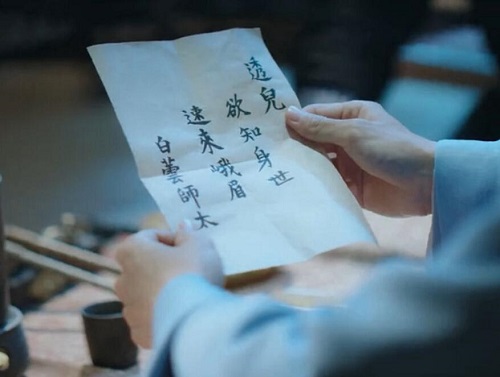 透兒
欲知身世
速來峨眉
白蕓師太